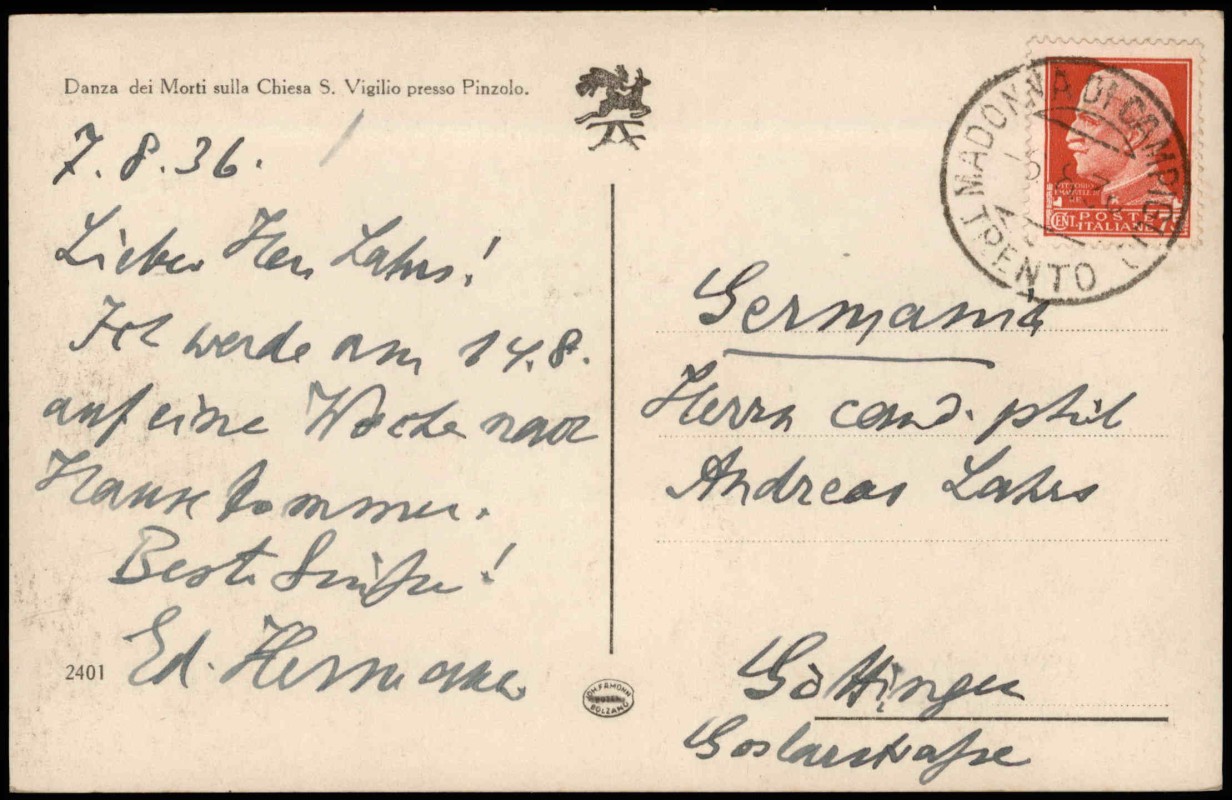 Danza dei Morti sulla Chiesa S. Vigilio presso Pinzolo.
7.8.36.
Lieber Herr Lahrs!
Ich werde am 14.8.
auf eine Woche nach
Hause kommen.
Beste Grüße!
Ed. Hermann
2401
JOH. F. AMONN
BOZEN
BOLZANO
MADONNA DI CAMPIGLIO
TRENTO
VITTORIO
EMANUELE III
RE
CENT. 75
POSTE
ITALIANE
Germania
Herrn cand. phil
Andreas Lahrs
Göttingen
Goslarstraße